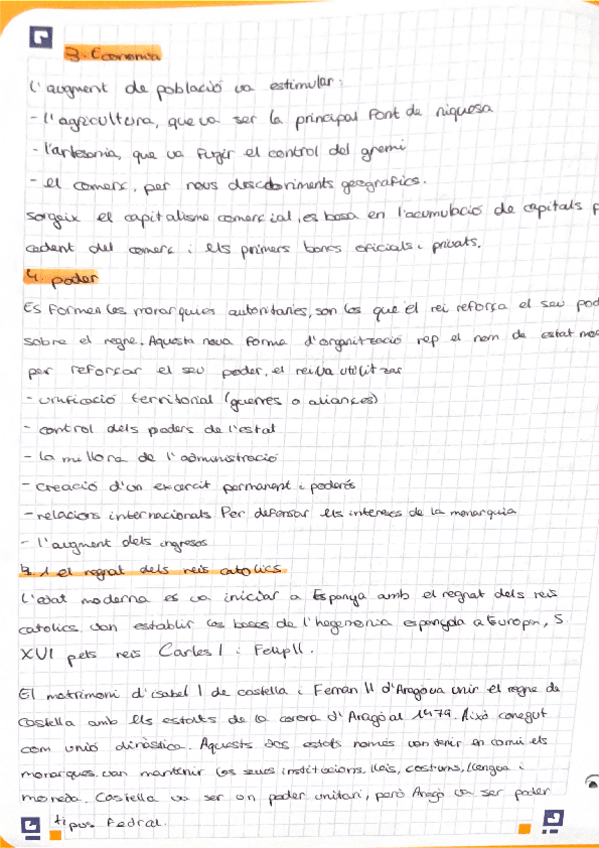 3. Economia
L'augment de població va estimular:
- l'agricultura, que va ser la principal font de riquesa
- l'artesania, que va fugir el control del gremi
- el comerç, per nous descobriments geografics.
Sorgeix el capitalisme comercial, es basa en l'acumulació de capitals p
cedent del comerç i els primers bancs oficials i privats.
4. poder
Es formen les monarquies autoritaries, son les que el rei reforça el seu pod
sobre el regne. Aquesta nova forma d'organització rep el nom de estat mo
per reforçar el seu poder, el rei va utilitzar
- unificació territorial (guerres o aliances)
- control dels poders de l'estat
- la millora de l'administració
- creació d'un excercit permanent i poderós
- relacions internacionals per defensar els interesos de la monarquia
- l'augment dels ingresos
4.1 el regnat dels reis catolics
L'edat moderna es va iniciar a Espanya amb el regnat dels reis
catolics van establir les bases de l'hegemonia espanyola a Europa, S
XVI pels reis Carles I i Felip II.
El matrimoni d'isabel I de castella i Ferran II d'Aragó va unir el regne de
Castella amb els estats de la corona d'Aragó al 1479. Aixó conegut
com unió dinàstica. Aquests dos estats només van tenir en comú els
monarques. van mantenir les seues institucions, lleis, costums, llengua i
moneda. Castella va ser un poder unitari, però Aragó va ser poder
tipus Fedral.